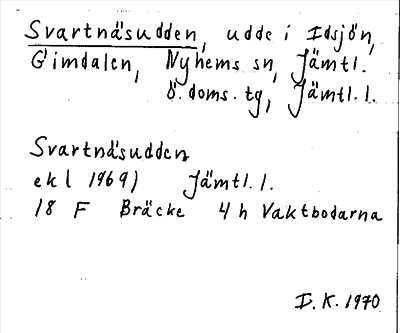 Svartnäsudden, udde i Idsjön,
Gimdalen, Nyhems sn, Jämtl.
Ö. doms. tg, Jämtl. l.
Svartnäsudden
ekl 1969) Jämtl. l.
18 F Bräcke 4 h Vaktbodarna
I. K. 1970